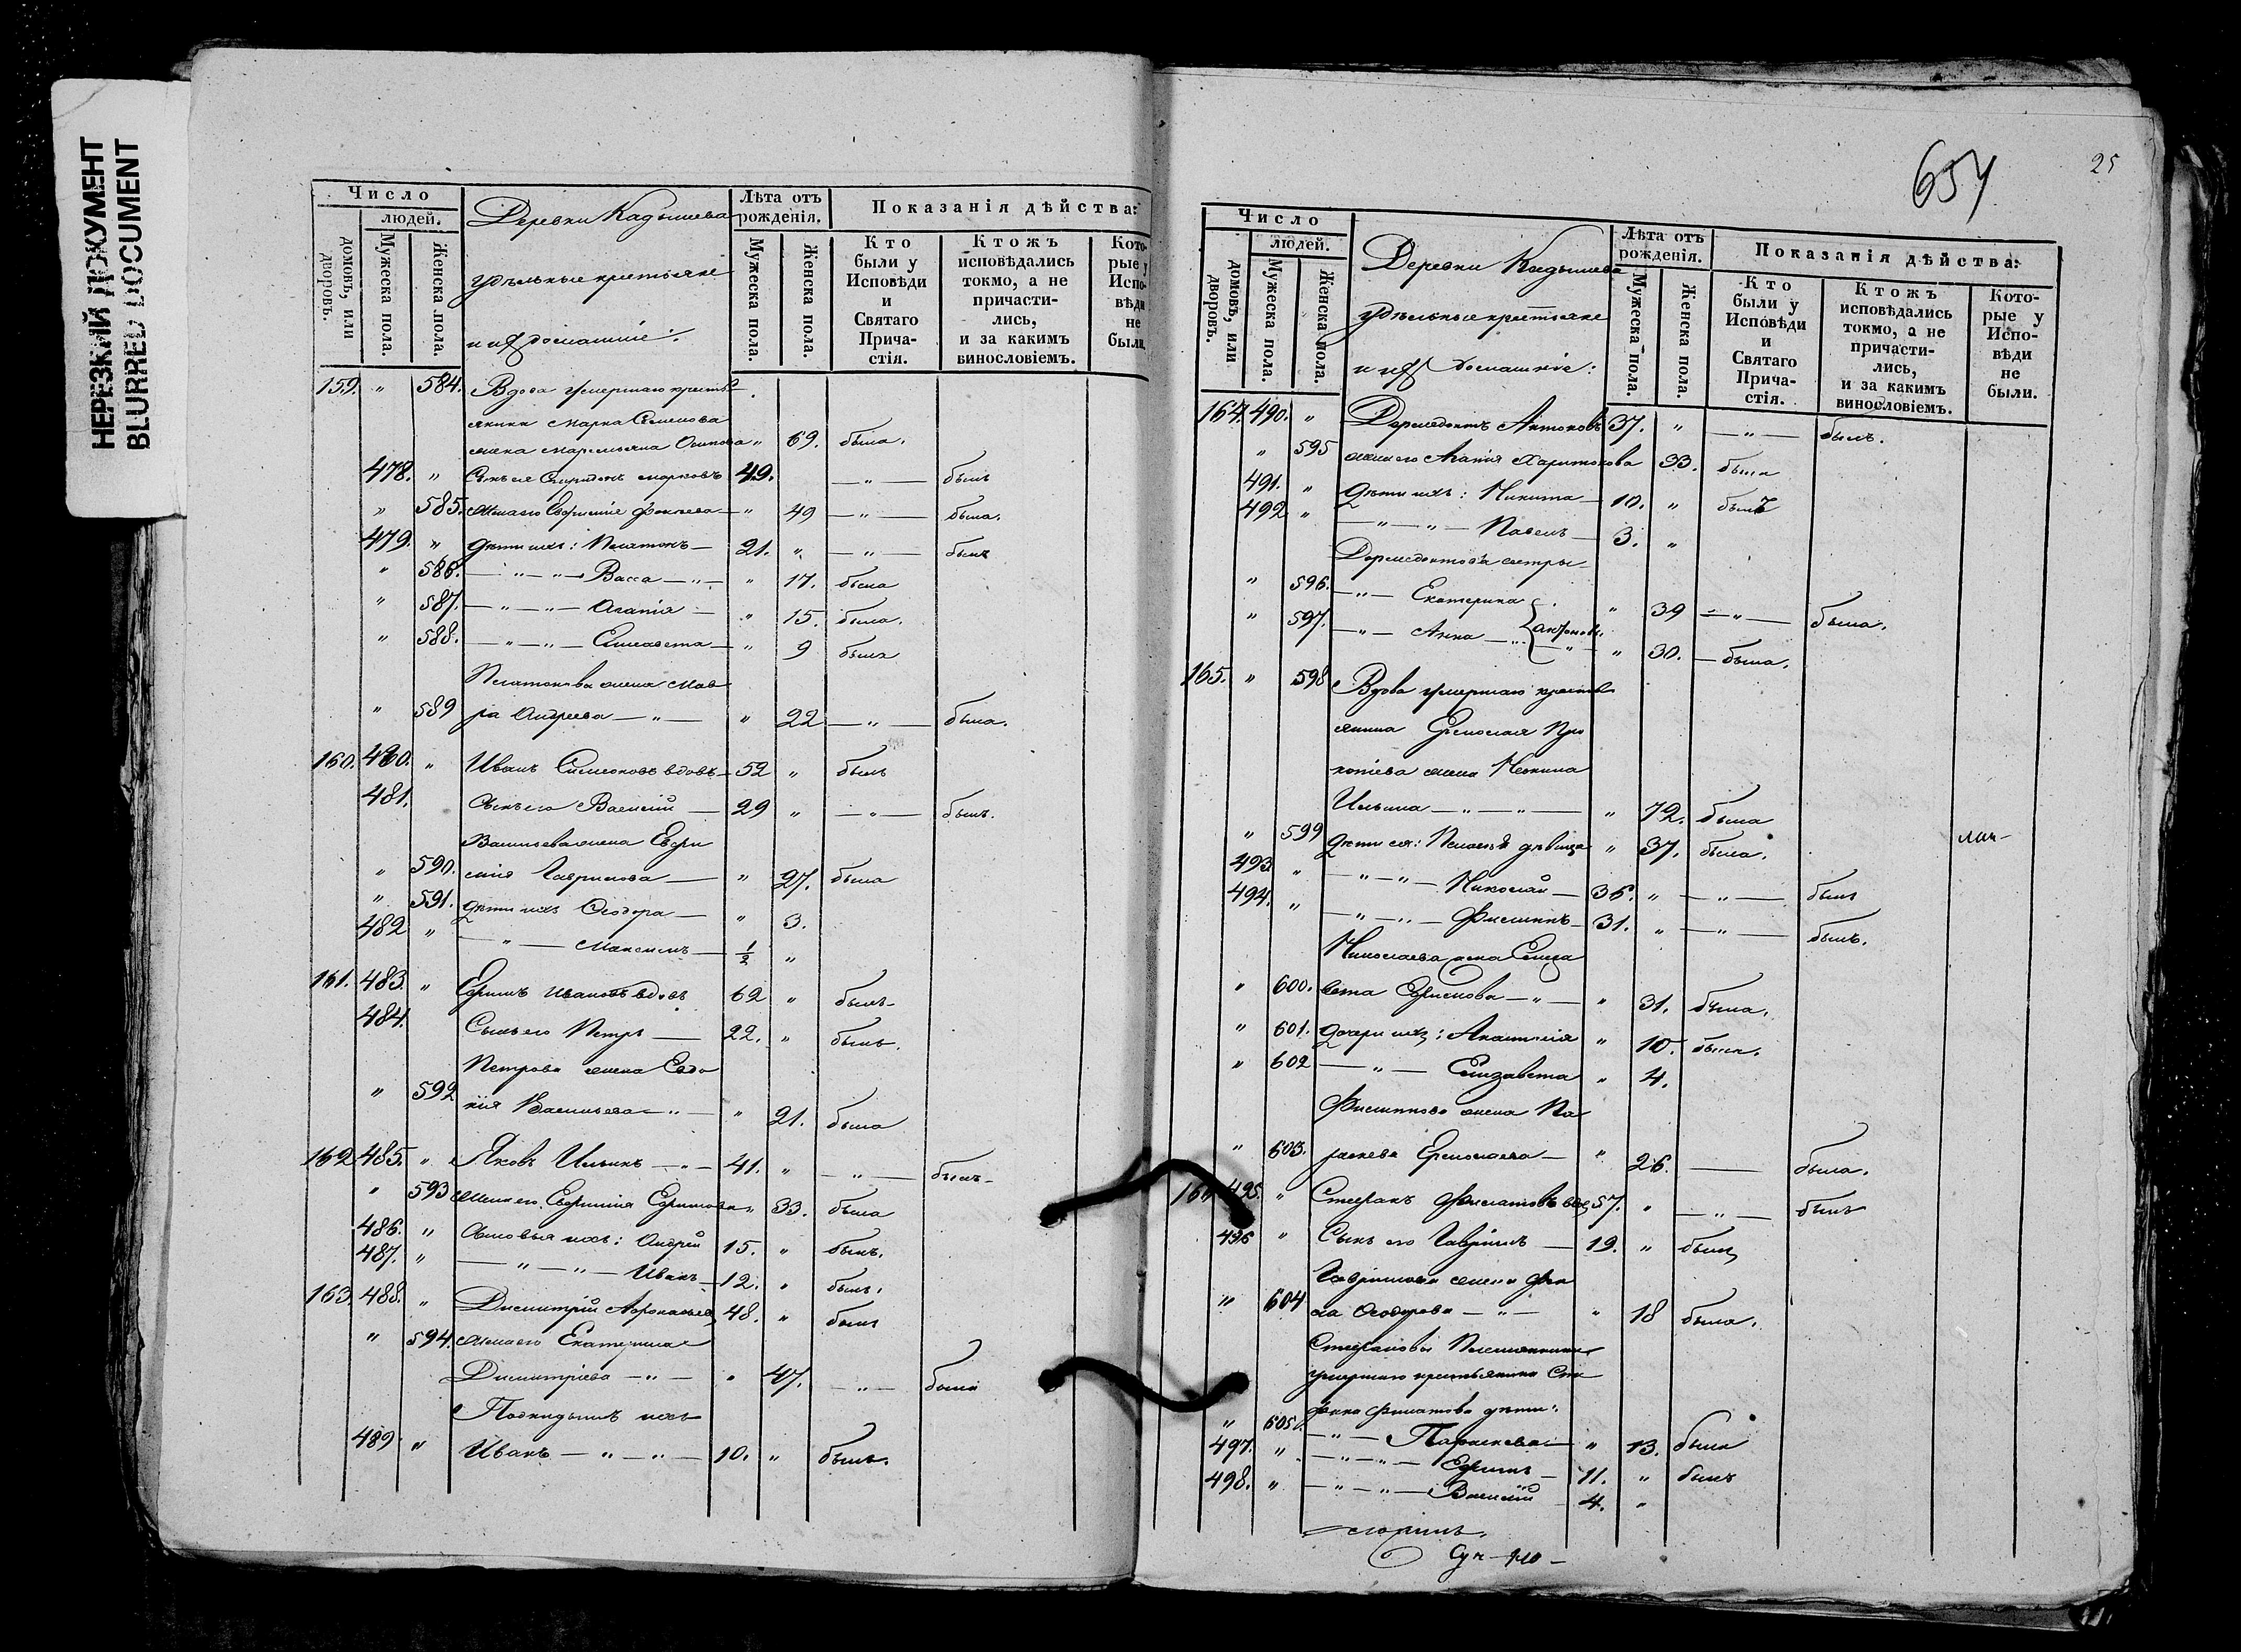 НЕРЕЗКИЙ ДОКУМЕНТ
BLURRED DOCUMENT
Число
людей.
домовъ, или дворовъ.
Мужеска пола.
Женска пола.
Деревни Кадышева
удѣльные крестьяне
и ихъ домашніе:
Лѣта отъ рожденія.
Мужеска пола.
Женска пола.
Показанія дѣйства:
Кто были у Исповѣди и Святаго Прича-стія.
Ктожъ исповѣдались токмо, а не причасти-лись, и за какимъ винословіемъ.
Кото-рые у Испо-вѣди не были.
159. " 584. Вдова умершаго кресть
янина Марка Семенова
жена Осипова " 69. была.
478. " Сынъ ея Спиридонъ Марковъ 49. — " — былъ
" 585. жена его " 49 — " — была.
479. " дѣти ихъ: Платонъ — 21. " — " — былъ
" 586. — " — " — Васса — " — " 17. была
" 587. — " — " — Агапія — " 15. была.
" 588. — " — " — Елисавета — " 9 была
Платонова жена Мав
" 589 ра Андреева — " — " 22 — " — была.
160. 480. " Иванъ Симеоновъ вдовъ — 52 " былъ
481. Сынъ его Василій — 29 " — " — былъ.
Васильева жена Евфи
" 590. мія Гаврилова — " 27. была
" 591. дѣти ихъ Ѳеодора — " 3.
482 " — " — Максимъ — 1/2 "
161. 483. " Ефимъ Ивановъ вдовъ 62 " былъ
484. Сынъ его Петръ — 22. " былъ.
Петрова жена Евдо
" 592 кія Васильева — " — " 21. была
162. 485. " Яковъ Ильинъ — " — 41. " — " — былъ
" 593 жена его Евфимія Ефимова " 33. была
486. " Сыновья ихъ: Андрей 15. " былъ.
487. " — " — " — Иванъ — 12. " былъ.
163. 488. " Димитрій Аѳонасьевъ 48. " былъ
" 594. жена его Екатерина
Димитріева — " — " 47. — " — была
Подкидышъ ихъ
489 " Иванъ — " — " — 10. " былъ.
657
25
Число
людей.
домовъ, или дворовъ.
Мужеска пола.
Женска пола.
Деревни Кадышева
удѣльные крестьяне
и ихъ домашніе:
Лѣта отъ рожденія.
Мужеска пола.
Женска пола.
Показанія дѣйства:
Кто были у Исповѣди и Святаго Прича-стія.
Ктожъ исповѣдались токмо, а не причасти-лись, и за какимъ винословіемъ.
Кото-рые у Испо-вѣди не были.
164. 490. " Дормедонтъ Антоновъ 37. " — " — былъ.
" 595 жена его Агапія Харитонова 33. была
491. " дѣти ихъ: Никита — 10. " былъ
492 " — " — " — Павелъ — 3. "
Дормедонтова сестры
" 596. — " — Екатерина " 39 — " — была.
" 597. — " — Анна — " Антоновы " 30. — была.
165. " 598 Вдова умершаго кресть
янина Ермолая Про
копіева жена
Ильина — " — " — " 72. была
" 599 дѣти ея: Пелагея дѣвица " 37. была.
493 " — " — " — Николай — 36. " — " — былъ
494. " — " — " — Филиппъ — 31. " — " — былъ.
Николаева жена Елиза
" 600. вета Ефимова — " — " 31. была.
" 601. дочери ихъ: Анастасія " 10. была.
" 602 — " — Елизавета " 4.
Филиппова жена Па
" 603. раскева Ермолаева — " 26. — была.
166 495. " Стефанъ Филатовъ вдов 57. " — " — былъ
496 " Сынъ его Гавріилъ — 19. " былъ
Гавріилова жена Ѳек
" 604 ла Ѳеодорова — " — " 18 была.
Стефановы Племянники
умершаго крестьянина Сте
фана Филатова дѣти:
" 605 — " — Параскева — " 13. была
497. " — " — " — Ефимъ — 11. " былъ
498. " — " — " — Василій — 4. "